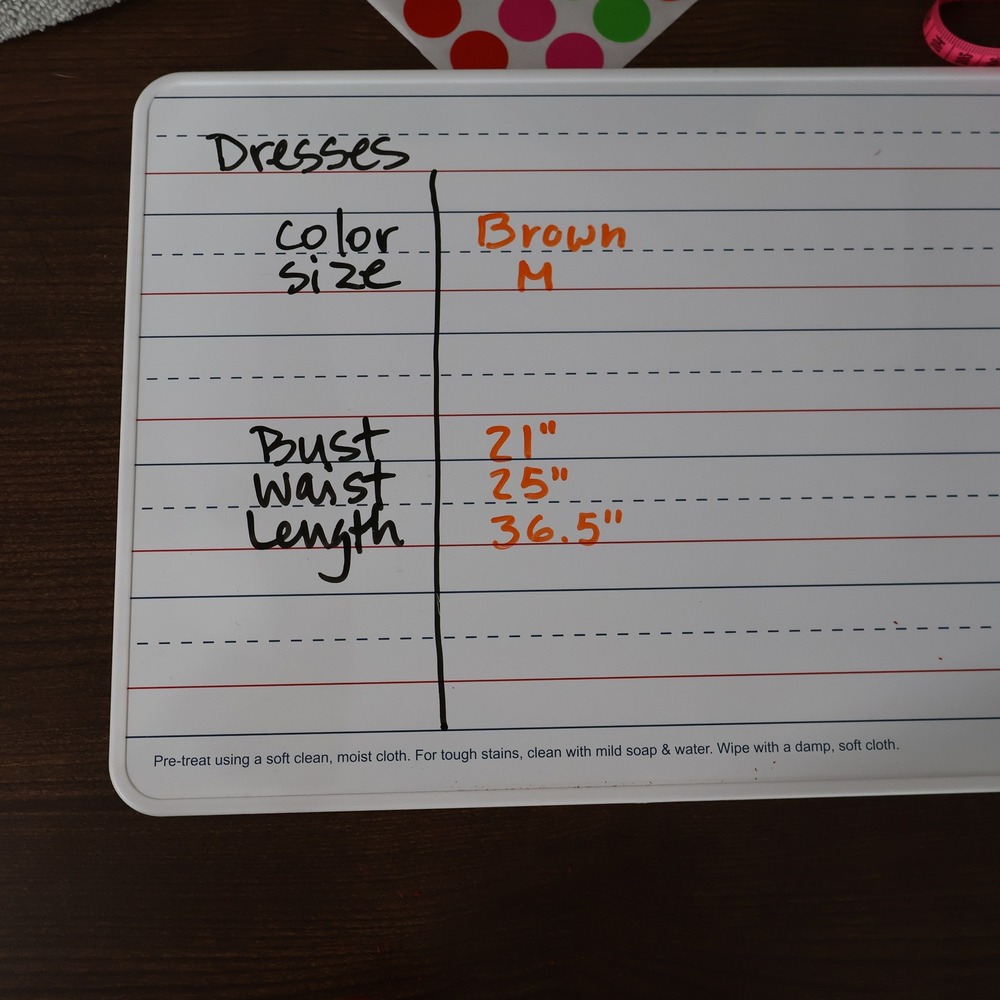 Dresses
Color Brown
Size M
Bust 21"
Waist 25"
Length 36.5"
Pre-treat using a soft clean, moist cloth. For tough stains, clean with mild soap & water. Wipe with a damp, soft cloth.